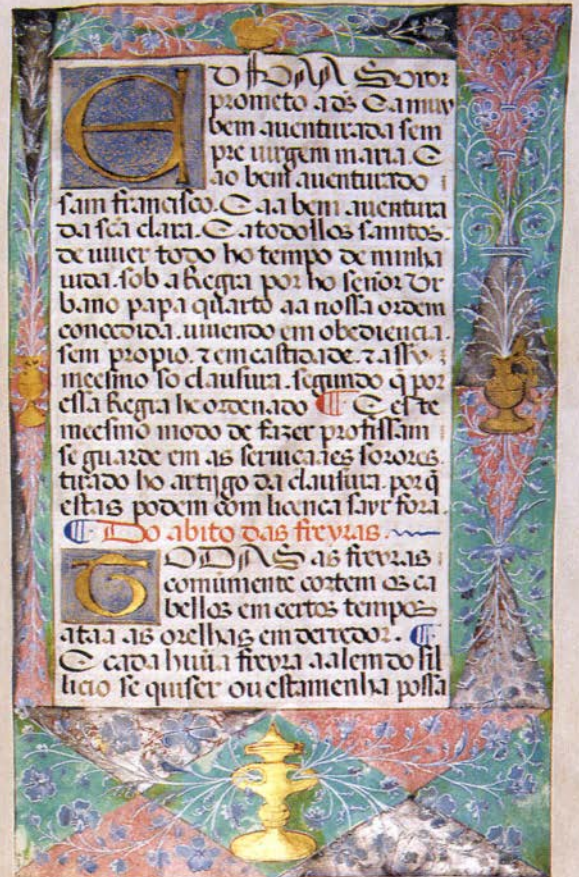 EU FOAA Soror
prometo a ds̃ E a muy
bem auenturada sem
pre uirgem maria. E
ao bem auenturado
sam francisco. E a a bem auentura
da sc̃a clara. E a todollos samtos.
de uiuer todo ho tempo de minha
uida. sob a Regra por ho señor Ur
bano papa quarto aa nossa ordem
concedida. uiuendo em obediencia.
sem propio. ⁊ em castidade. ⁊ assy
meesmo so clausura. segundo q̃ por
essa Regra he ordenado ¶ E este
meesmo modo de fazer profissam
se guarde em as seruiçaes sorores.
tirado ho artijgo da clausura. por q̃
estas podem com licença sayr fora.
¶ Do abito das freyras.
TODAS as freyras
comũmente cortem os ca
bellos em certos tempos
ataa as orelhas em derredor. ¶
E cada hũa freyra aalem do sil
licio se quiser ou estamenha possa